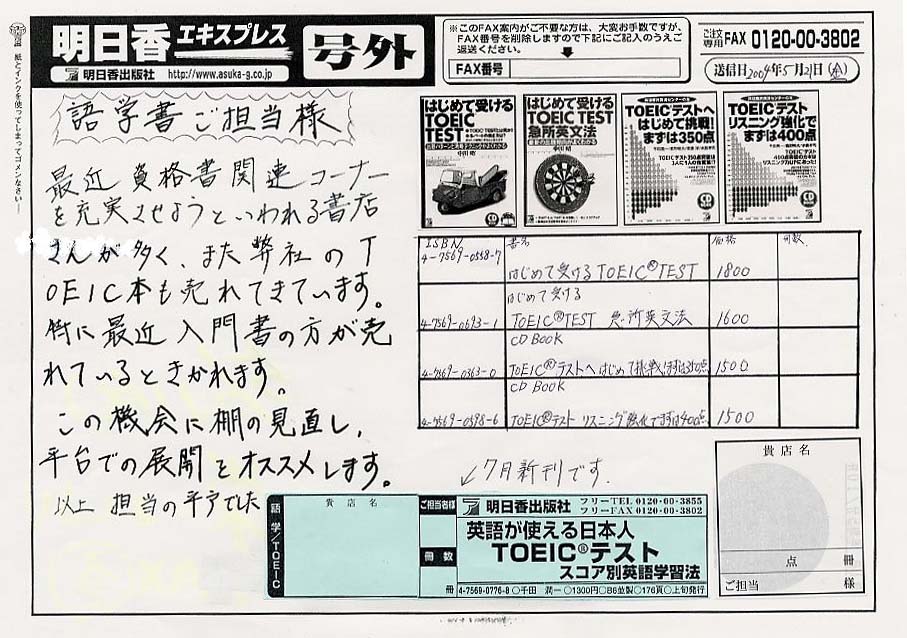 紙とインクを使ってしまってゴメンなさい
明日香エキスプレス
号外
明日香出版社 http://www.asuka-g.co.jp/
※このFAX案内がご不要な方は、大変お手数ですが、
FAX番号を削除しますので下記にご記入のうえご
返送ください。
FAX番号
ご注文専用 FAX 0120-00-3802
送信日2004年5月21日(金)
語学書ご担当様
最近 資格書関連コーナー
を充実させようといわれる書店
さんが多く、また弊社のT
OEIC本も売れてきています。
特に最近入門書の方が売
れているときかれます。
この機会に棚の見直し、
平台での展開とオススメします。
以上 担当の平戸でした
はじめて受ける
TOEIC
TEST
はじめて受ける
TOEIC TEST
急所英文法
TOEIC®テストへ
はじめて挑戦!
まずは350点
TOEIC®テスト
リスニング強化で
まずは400点
ISBN 書名 価格 冊数
4-7569-0558-7 はじめて受けるTOEIC®TEST 1800
はじめて受ける
4-7569-0693-1 TOEIC®TEST 急所英文法 1600
CD BOOK
4-7569-0363-0 TOEIC®テストへはじめて挑戦!まずは350点 1500
CD BOOK
4-7569-0398-6 TOEIC®テスト リスニング強化でまずは400点 1500
↙7月新刊です.
語学/TOEIC
貴店名
ご担当者様
冊数
冊
明日香出版社 フリーTEL 0120-00-3855
フリーFAX 0120-00-3802
英語が使える日本人
TOEIC®テスト
スコア別英語学習法
4-7569-0776-8 ○千田 潤一 ○1300円 ○B6並製 ○176頁 ○上旬発行
貴店名
点 冊
ご担当 様